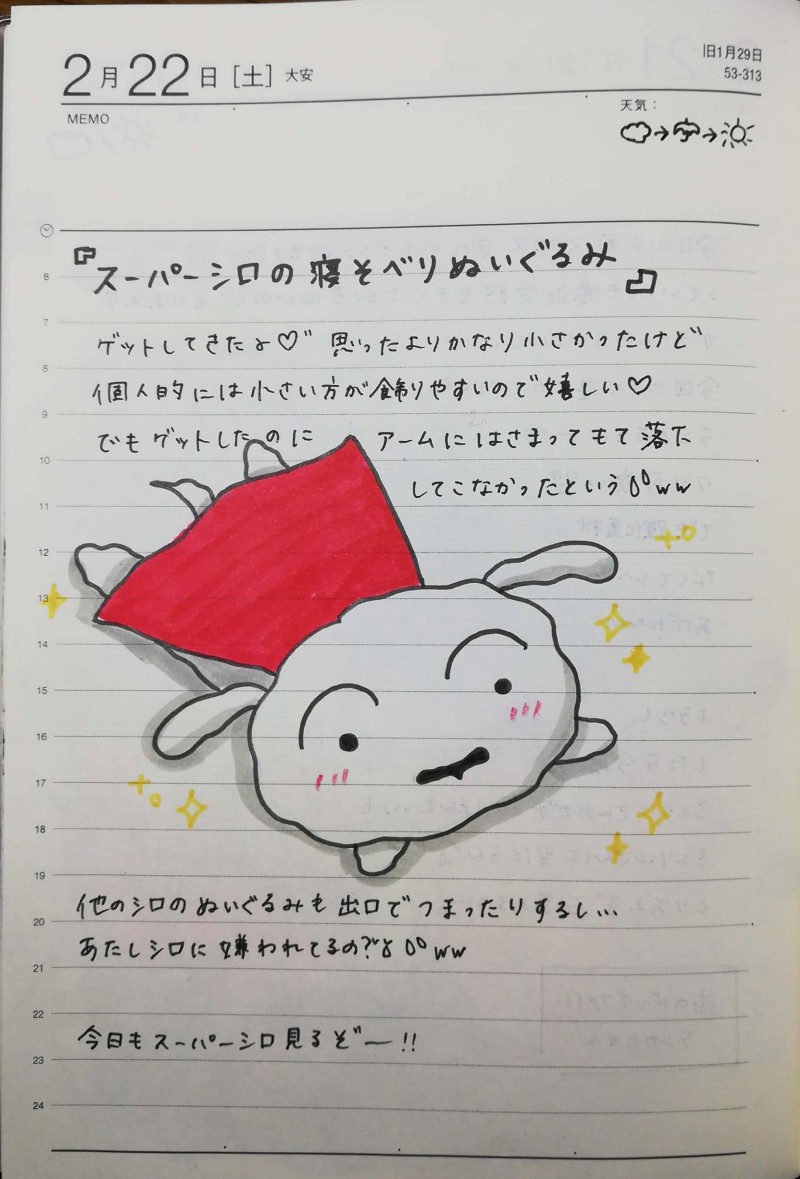 2月22日[土] 大安
旧1月29日
53-313
MEMO
天気：
『スーパーシロの寝そべりぬいぐるみ』
ゲットしてきたよ♡゛ 思ったよりかなり小さかったけど
個人的には小さい方が飾りやすいので嬉しい♡
でもゲットしたのに アームにはさまってもて落下
してこなかったというww
他のシロのぬいぐるみも出口でつまったりするし…
あたしシロに嫌われてるの?とww
今日もスーパーシロ見るぞ〜!!
6
7
8
9
10
11
12
13
14
15
16
17
18
19
20
21
22
23
24